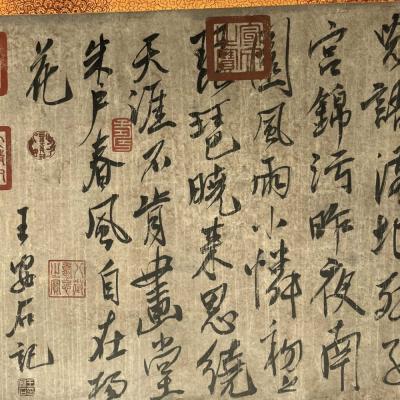 語滿地
宮錦污昨夜南
園風雨小憐初上
琵琶曉來思繞
天涯不肯畫堂
朱戶春風自在楊
花
王安石記